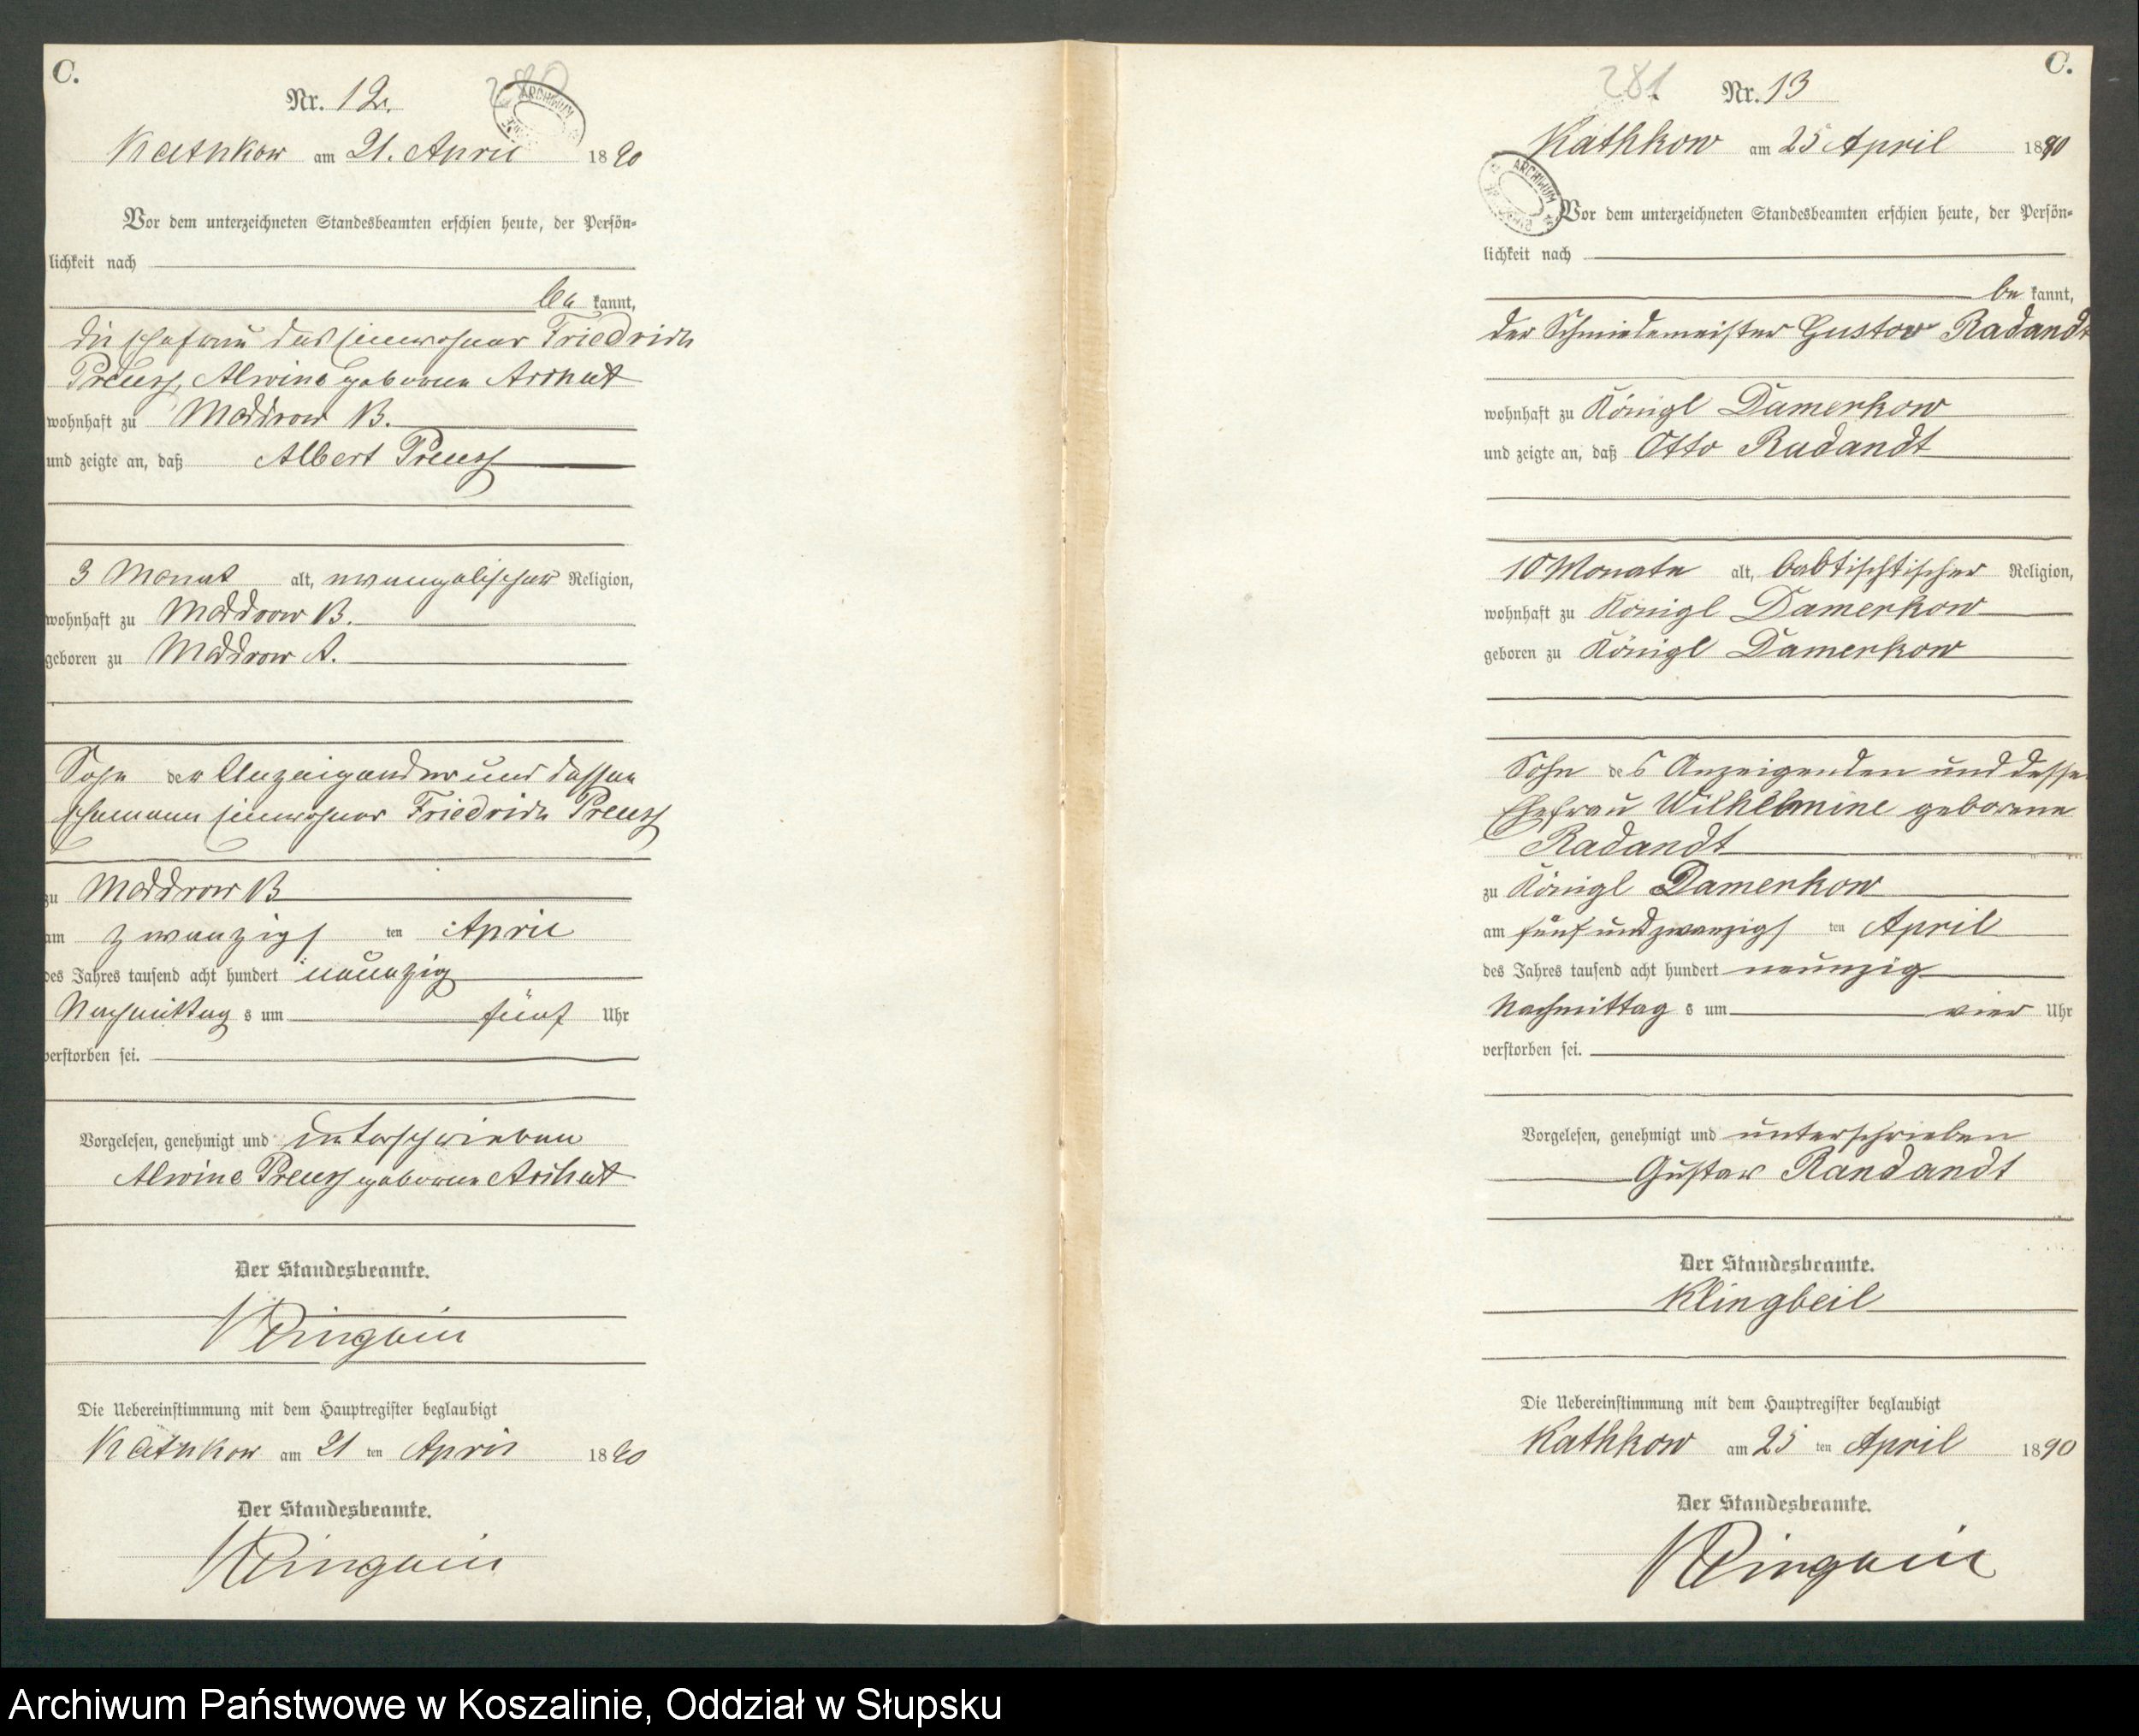 C.
280
Nr. 12.
ARCHIWUM
Kathkow am 21. April 1890
Vor dem unterzeichneten Standesbeamten erschien heute, der Persön-
lichkeit nach
be kannt,
die Ehefrau des Einwohner Friedrich
Preuss, Alwine geborene
wohnhaft zu Maddrow B.
und zeigte an, daß Albert Preuss
3 Monat alt, evangelischer Religion,
wohnhaft zu Maddrow B.
geboren zu Maddrow A.
Sohn der Anzeigender und dessen
Ehemann Einwohner Friedrich Preuss
zu Maddrow B
am zwanzigs ten April
des Jahres tausend acht hundert neunzig
Nachmittag s um fünf Uhr
verstorben sei.
Vorgelesen, genehmigt und unterschrieben
Alwine Preuss geborene
Der Standesbeamte.
Klingbeil
Die Uebereinstimmung mit dem Hauptregister beglaubigt
Kathkow am 21 ten April 1890
Der Standesbeamte.
Klingbeil
C.
281
Nr. 13
Kathkow am 25 April 1890
ARCHIWUM
Vor dem unterzeichneten Standesbeamten erschien heute, der Persön-
lichkeit nach
be kannt,
der Schmiedemeister Gustav Radandt
wohnhaft zu Königl Damerkow
und zeigte an, daß Otto Radandt
10 Monate alt, babtischtischer Religion,
wohnhaft zu Königl Damerkow
geboren zu Königl Damerkow
Sohn des Anzeigenden und desse
Ehefrau Wilhelmine geborene
Radandt
zu Königl Damerkow
am fünf und zwanzigs ten April
des Jahres tausend acht hundert neunzig
Nachmittag s um vier Uhr
verstorben sei.
Vorgelesen, genehmigt und unterschrieben
Gustav Randandt
Der Standesbeamte.
Klingbeil
Die Uebereinstimmung mit dem Hauptregister beglaubigt
Kathkow am 25 ten April 1890
Der Standesbeamte.
Klingbeil
Archiwum Państwowe w Koszalinie, Oddział w Słupsku